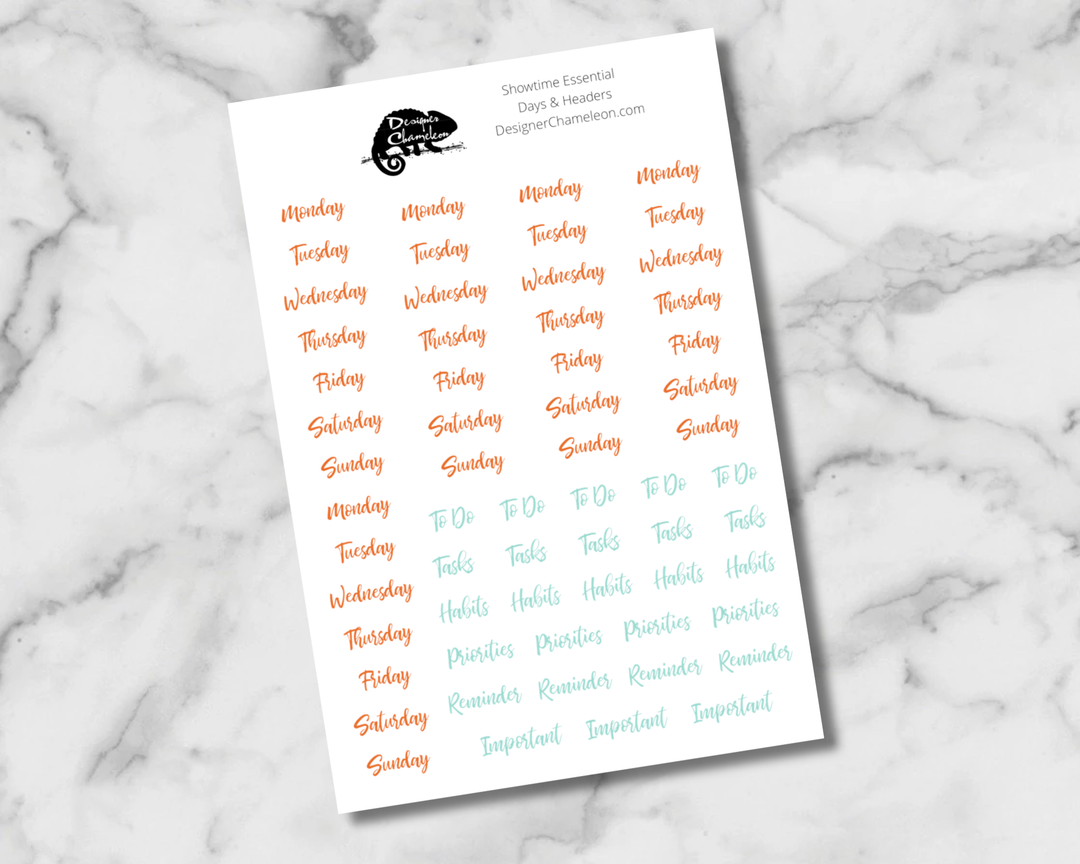 Designer
Chameleon
Showtime Essential
Days & Headers
DesignerChameleon.com
Monday Monday Monday Monday
Tuesday Tuesday Tuesday Tuesday
Wednesday Wednesday Wednesday Wednesday
Thursday Thursday Thursday Thursday
Friday Friday Friday Friday
Saturday Saturday Saturday Saturday
Sunday Sunday Sunday Sunday
Monday
Tuesday
Wednesday
Thursday
Friday
Saturday
Sunday
To Do To Do To Do To Do To Do
Tasks Tasks Tasks Tasks Tasks
Habits Habits Habits Habits Habits
Priorities Priorities Priorities Priorities
Reminder Reminder Reminder Reminder
Important Important Important